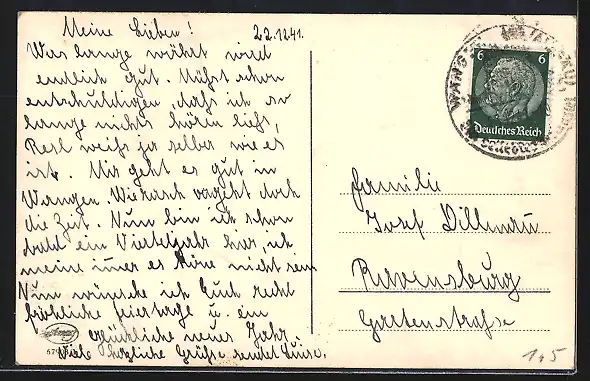 Meine Lieben! 22.12.41.
Was lange währt wird
endlich gut. Müßt schon
entschuldigen, daß ich so
lange nichts hören ließ,
Resl weiß ja selber wie es
ist. Mir geht es gut in
Wangen. Wie rasch vergeht doch
die Zeit. Nun bin ich schon
bald ein Vierteljahr hier, ich
meine imer es könne nicht sein.
Nun wünsche ich Euch recht
fröhliche Feiertage u. ein
glückliches neues Jahr
Viele herzliche Grüße sendet Luise.
6 6
Deutsches Reich
WANGEN
Familie
Josef Dillmau
Ravensburg
Gartenstraße
145